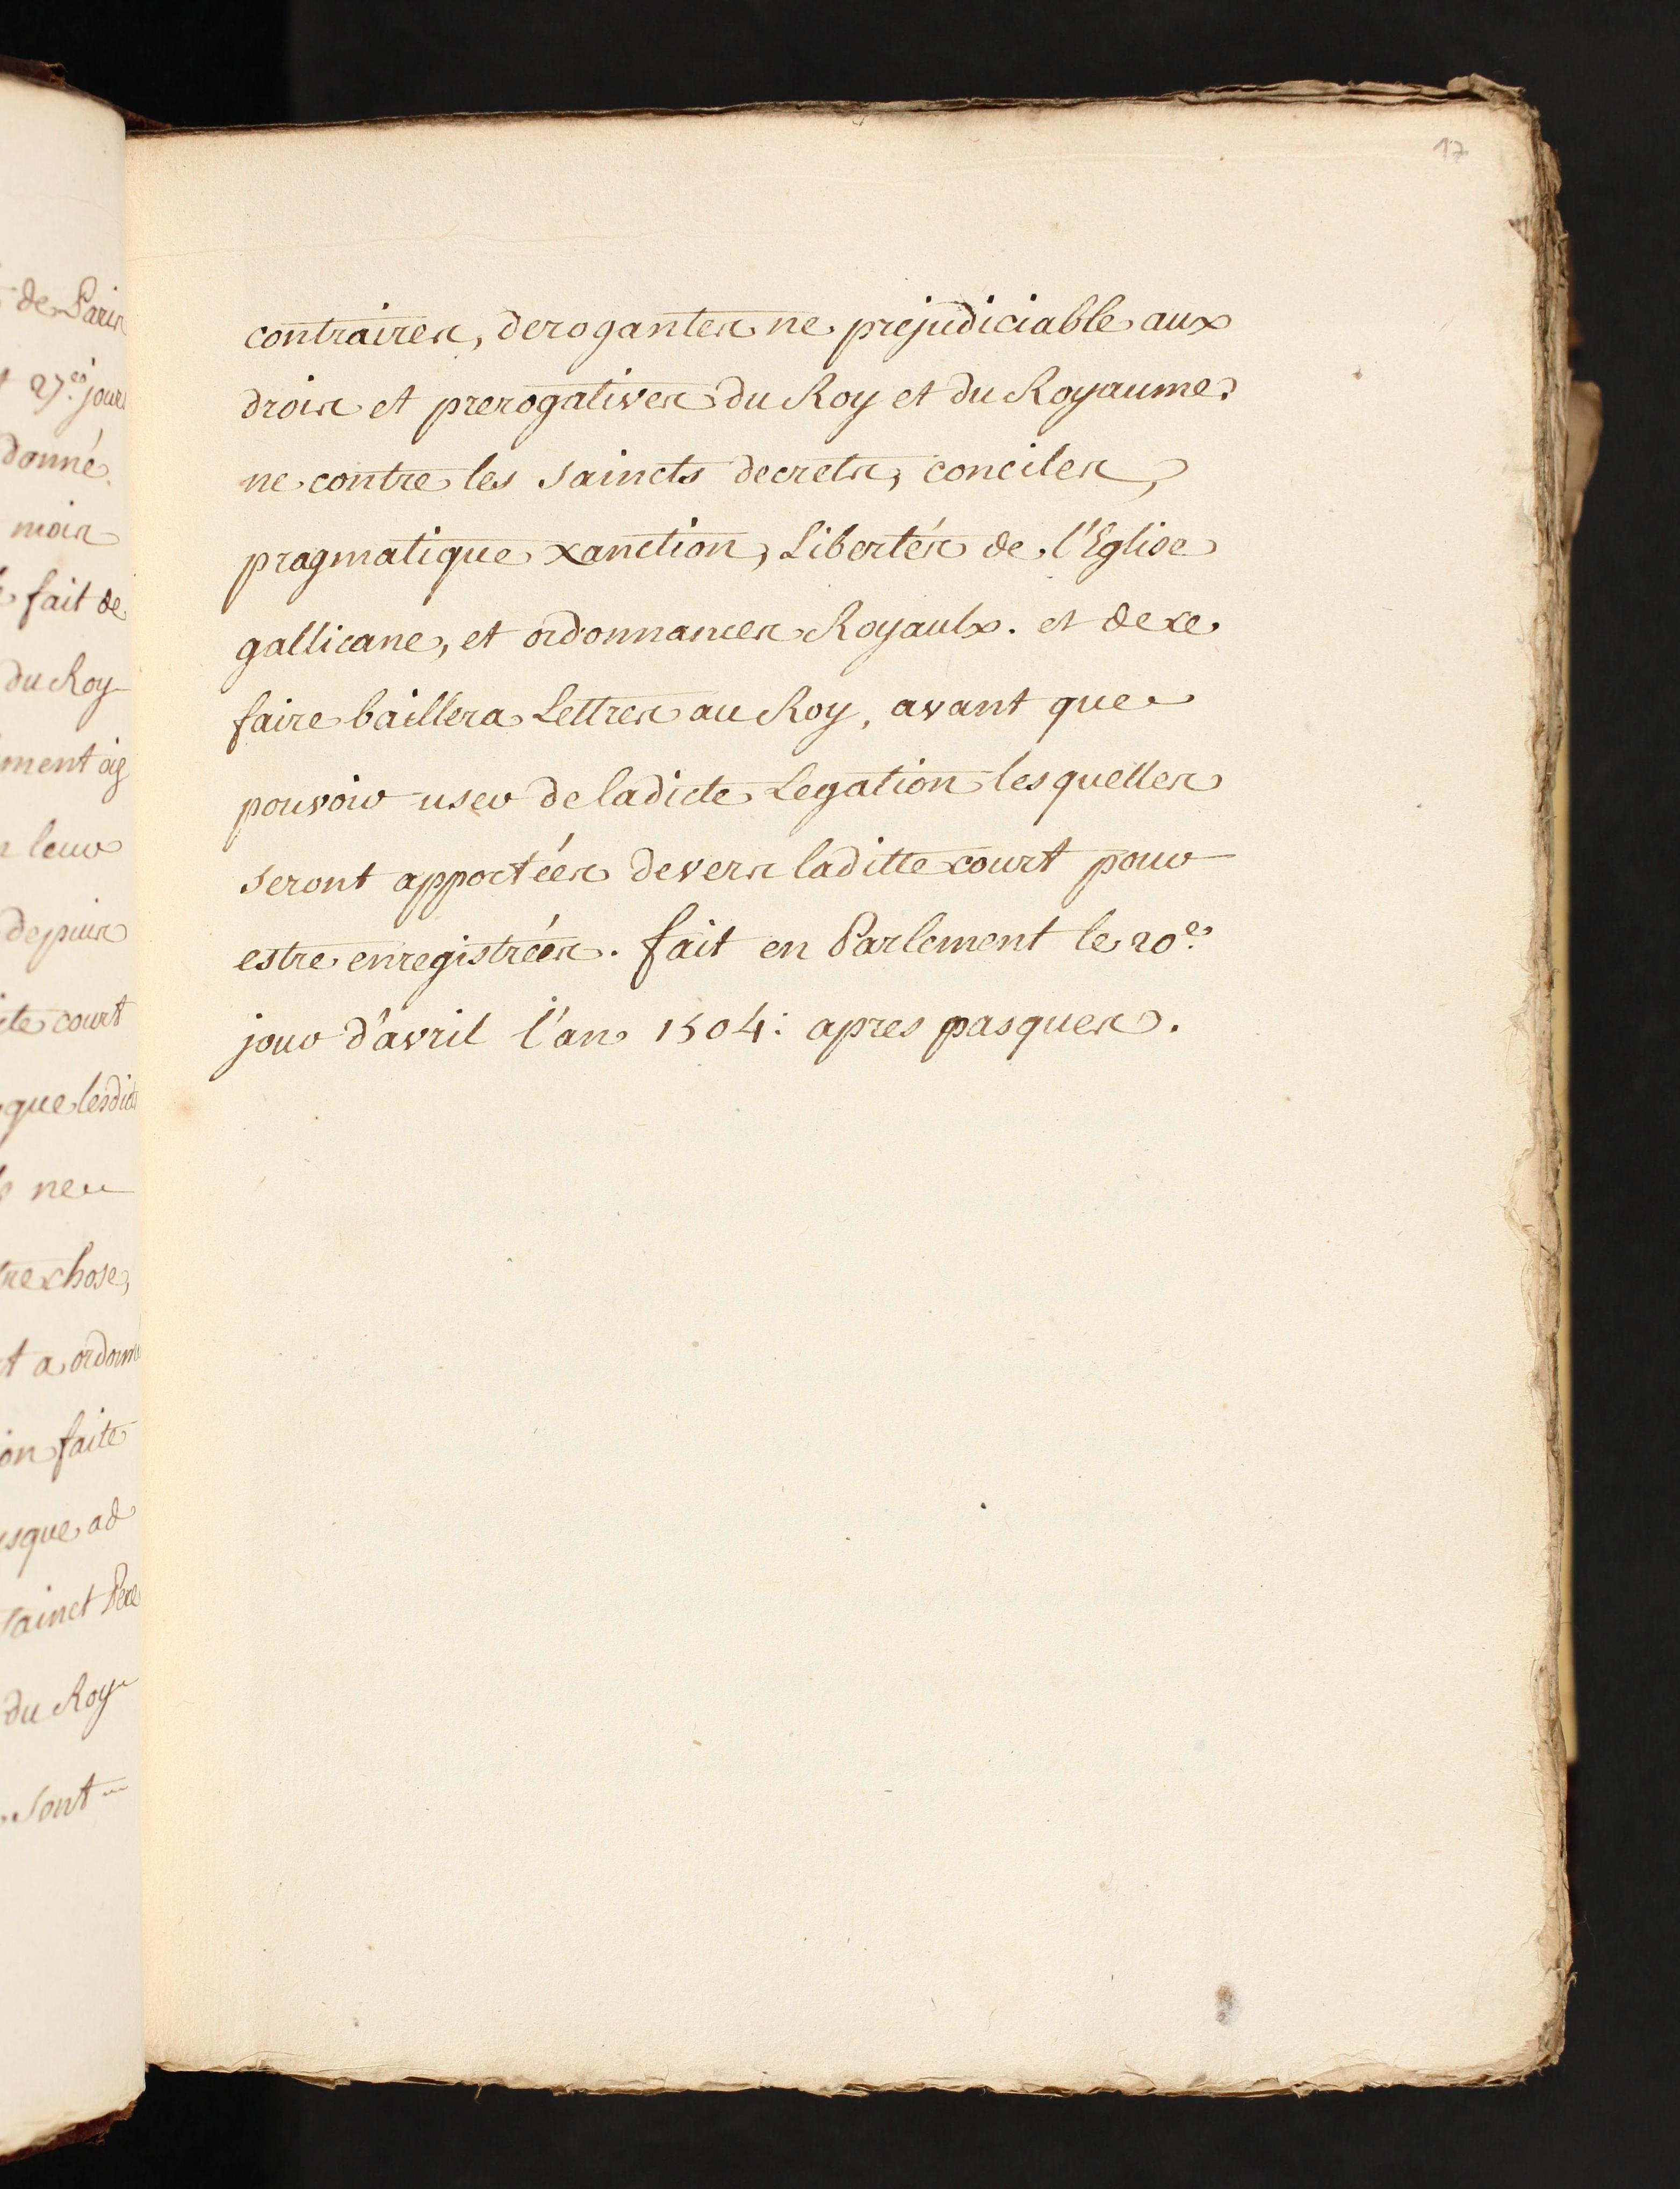 17
contraires, derogantes ne prejudiciable aux
drois et prerogatives du Roy et du Royaume,
ne contre les saincts decrets, conciles,
pragmatique xanction, Libertés de l'Eglise
gallicane, et ordonnances Royaulx. et de ce
faire baillera Lettres au Roy, avant que
pouvoir user de ladicte Legation lesquelles
seront apportées devers laditte court pour
estre enregistrées. fait en Parlement le 20e.
jour d'avril l'an 1504: apres pasques.
de Paris
27es. jours
donné
mois
fait de
du Roy
leur
depuis
court
que lesdicts
ne
chose,
a ordonné
faite
ad
sainct Pere
du Roy
sont